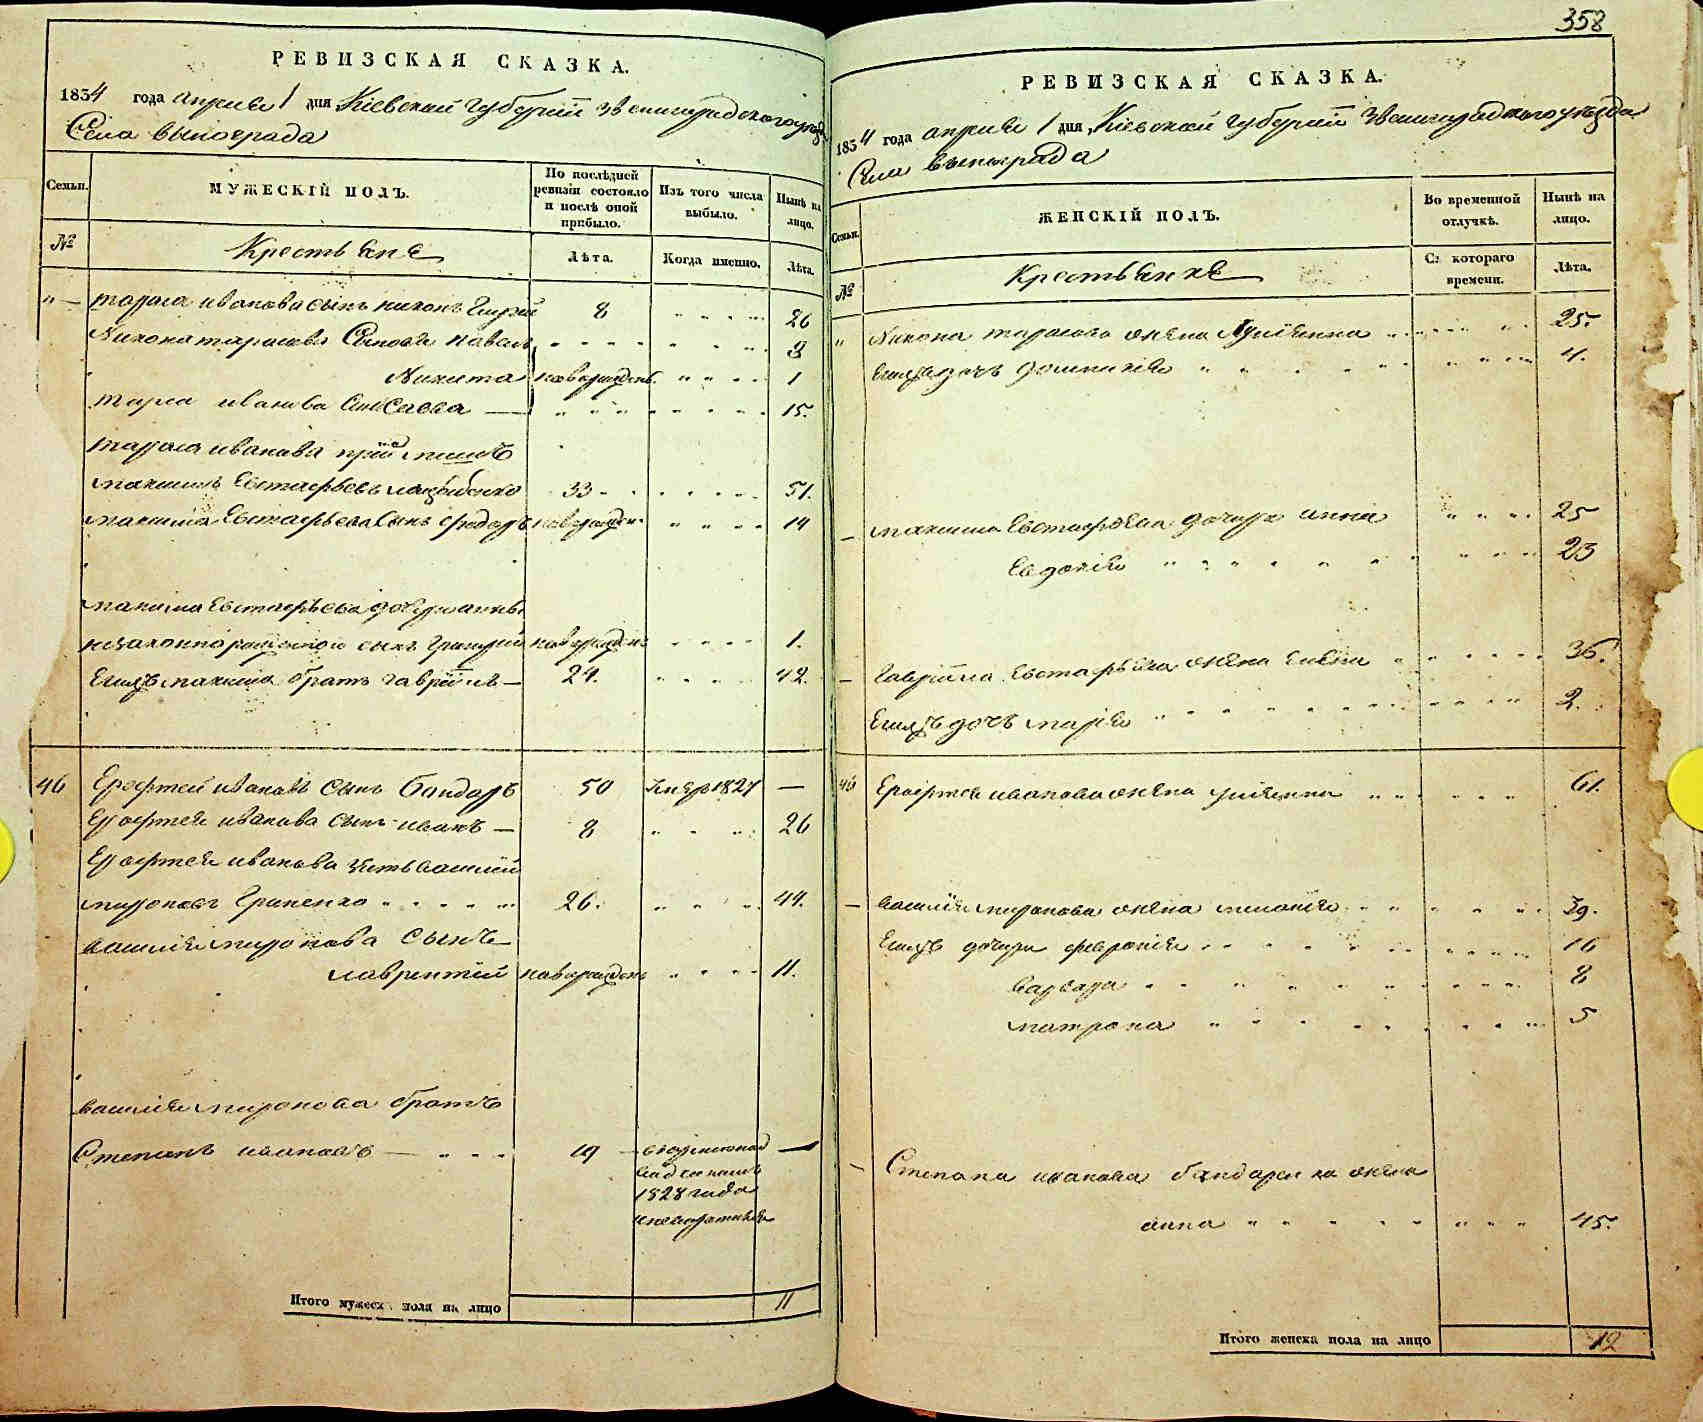 РЕВИЗСКАЯ СКАЗКА.
1834 года апреля 1 дня Кіевской губерніи Звенигородского уезда
Села Винограда
Семьи. МУЖЕСКІЙ ПОЛЪ. По послѣдней ревизіи состояло и послѣ оной прибыло. Изъ того числа выбыло. Нынѣ на лицо.
№ Крестьяне Лѣта. Когда именно. Лѣта.
" — Тараса иванова сынъ никонъ 8 " " " " 26
Никона тарасова Сыновья павелъ " " " " 8
Никита новорожденъ " " " " 1
тараса иванова — " " " " 15.
Тараса иванова
максимъ Евстафьевъ 33 " " " " 51.
максима Евстафьева Сынъ федоръ новорожден " " " " 14
максима Евстафьева дочери анны
незаконнорожденной сынъ григорий новорожденъ " " " " 1.
Емуж максима братъ гавріилъ — 24. " " " " 42.
46 Ерофтей ивановъ Сынъ бондарь 50 1827 —
Ерофтея иванова Сынъ иванъ — 8 " " " 26
Ерофтея иванова зять василий
миронов гриненко " " " " 26. " " " 44.
василия миронова Сынъ —
лаврентій новорожденъ " " " " 11.
василия миронова братъ
Степанъ ивановъ — " " " 19 —
1828 года
Итого мужеск. пола на лицо 11
358
РЕВИЗСКАЯ СКАЗКА.
1834 года апреля 1 дня Кіевской губерніи Звенигородского уезда
Села Винограда
Семьи. ЖЕНСКІЙ ПОЛЪ. Во временной отлучкѣ. Нынѣ на лицо.
№ Крестьянке Съ котораго времени. Лѣта.
" Никона тарасова жена 25.
Емуж дочь 4.
максима Евстафьева дочери анна " " " " 25
Евдокия " " " " " 23
гавріила Евстафьева жена елена " " " " 36.
Емуж дочь мария " " " " 2.
46 Ерофтея иванова жена ульяна " " " " 61.
василия миронова жена мелания " " " " 39.
Емуж дочери феврония " " " " 16
варвара " " " " 8
матрона " " " " 5
Степана иванова бондаренка жена
анна " " " " 45.
Итого женска пола на лицо 12